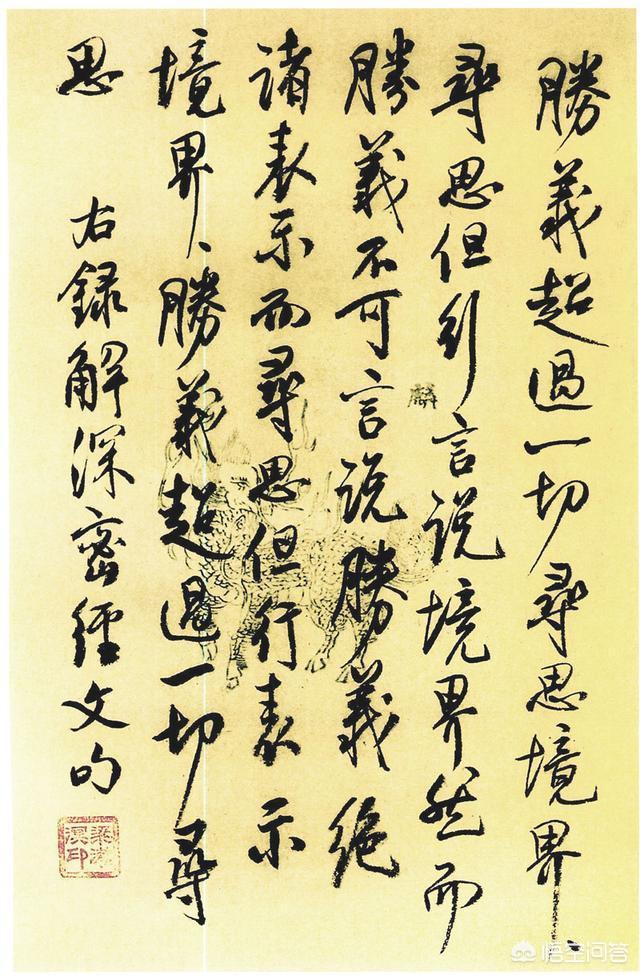 勝義超過一切尋思境界、
尋思但行言說境界然而
勝義不可言說勝義絕
諸表示而尋思但行表示
境界、勝義超過一切尋
思
右錄解深密經文句
梁漱溟印
悟空问答